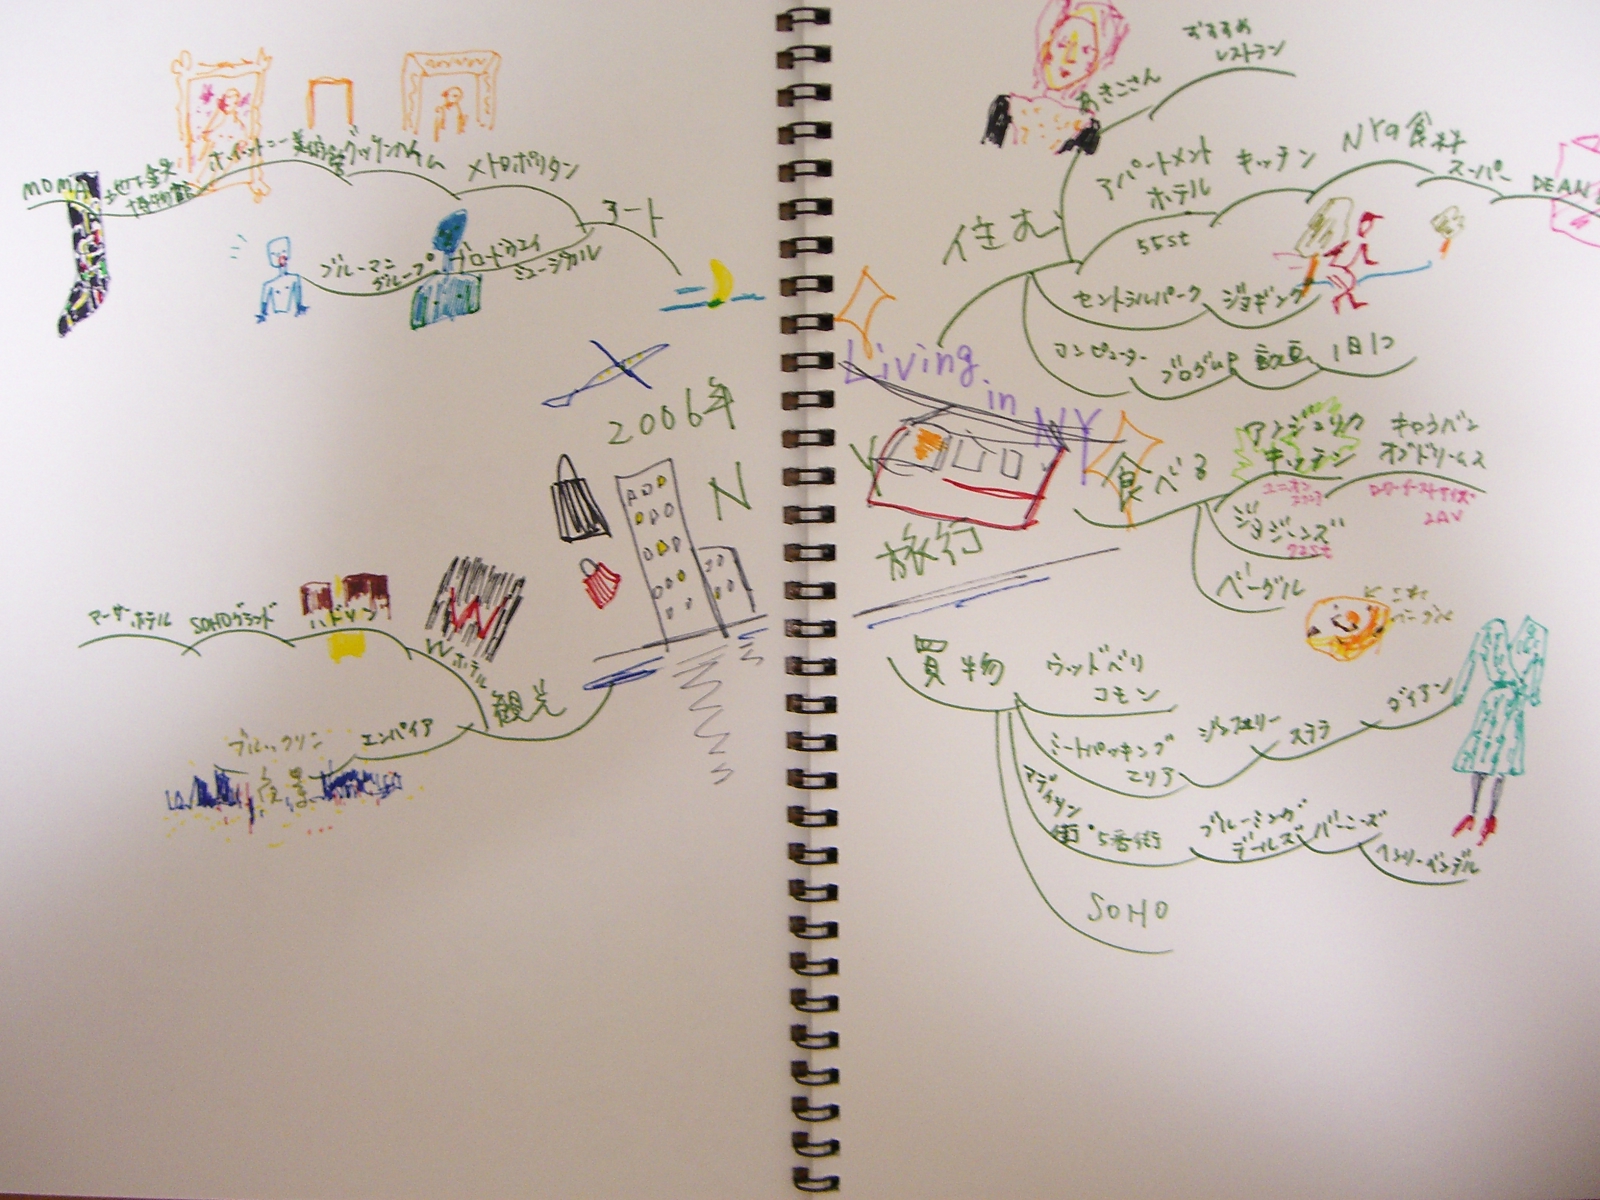 MOMA
メトロポリタン
アート
ブルーマン
グループ
ブロードウェイ
ミュージカル
2006年
N
Y
旅行
Living
in
NY
SOHOグランド
ハドソン
Wホテル
観光
エンパイア
ブルックリン
夜景
あきこさん
おすすめ
レストラン
住む
アパートメント
ホテル
キッチン
NYの食料
スーパー
DEAN
55st
セントラルパーク
ジョギング
コンピューター
ブログUP
1日1つ
食べる
アンジェリカ
キッチン
ユニオン
キャラバン
オブドリームス
2AV
ジョジョーンズ
ベーグル
買物
ウッドベリ
コモン
ミートパッキング
エリア
ジェフェリー
ステラ
ダイアン
マディソン
街・5番街
ブルーミング
デールズ
バーニーズ
ヘンリーベンデル
SOHO